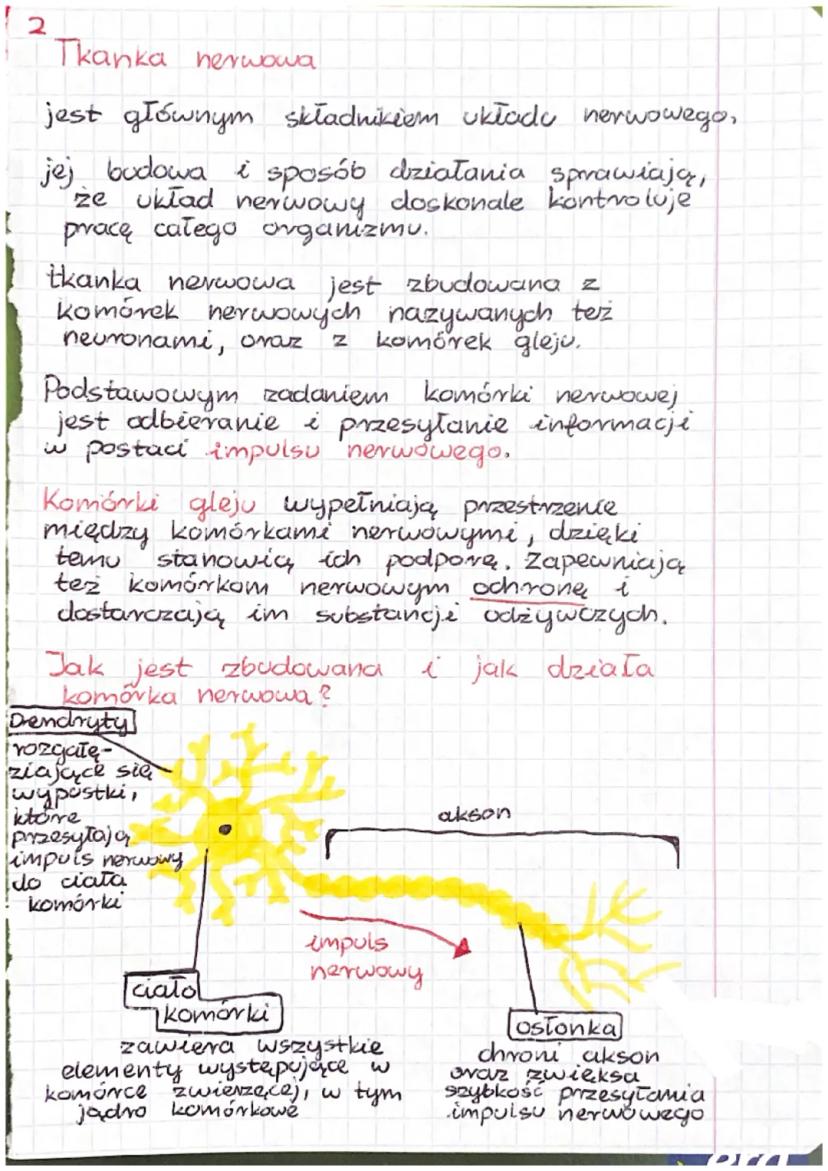 2
Tkanka nerwowa
jest głównym składnikiem układu nerwowego,
jej budowa i sposób działania sprawiają,
że układ nerwowy doskonale kontroluje
pracę całego organizmu.
tkanka nerwowa jest zbudowana z
komórek nerwowych nazywanych też
neuronami, oraz z komórek gleju.
Podstawowym zadaniem komórki nerwowej
jest odbieranie i przesyłanie informacji
w postaci impulsu nerwowego.
Komórki gleju wypełniają przestrzenie
między komórkami nerwowymi, dzięki
temu stanowią ich podporę. Zapewniają
też komórkom nerwowym ochronę i
dostarczają im substancji odżywczych.
Jak jest zbudowana i jak działa
komórka nerwowa?
Dendryty
rozgałę-
ziające się
wypustki,
które
przesyłają
impuls nerwowy
do ciała
komórki
akson
impuls
nerwowy
ciało
komórki
zawiera wszystkie
elementy występujące w
komórce zwierzęcej, w tym
jądro komórkowe
osłonka
chroni akson
oraz zwięksa
szybkość przesyłania
impulsu nerwowego